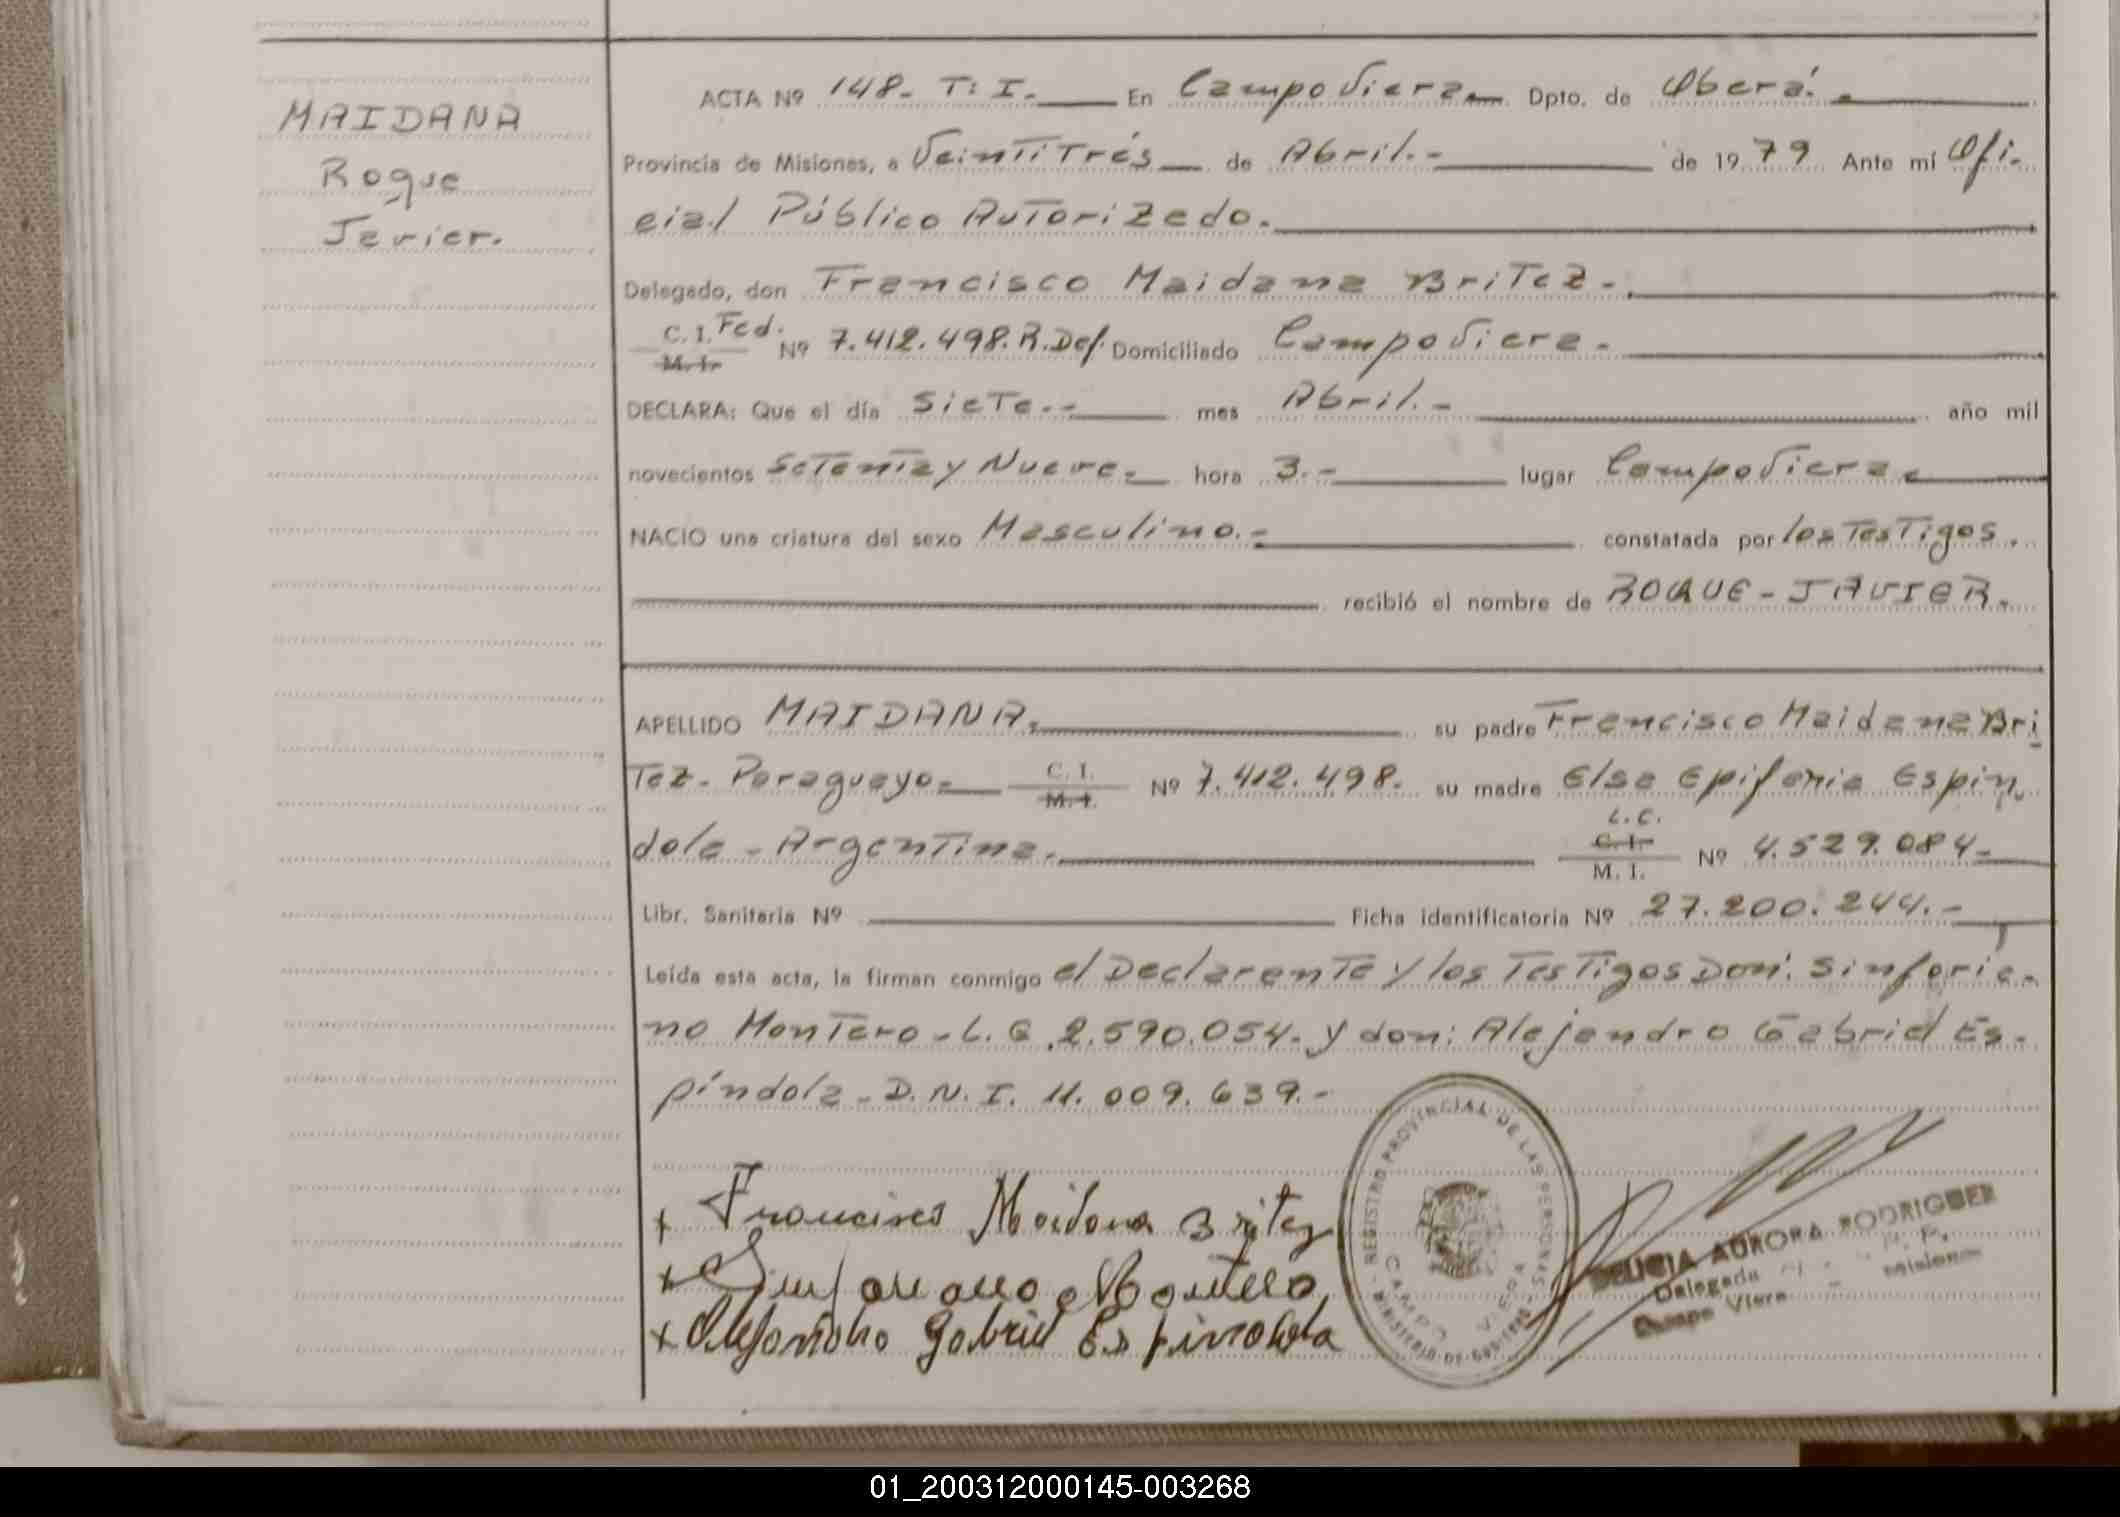 MAIDANA
Roque
Javier.
ACTA Nº 148.- T: I.- En Campo Viera.- Dpto. de Oberá.-
Provincia de Misiones, a Veintitrés de Abril.- de 1979 Ante mí Ofi-
cial Público Autorizado.
Delegado, don Francisco Maidana Britez.-
C. I. Fed.
M. I. Nº 7.412.498.R.Def. Domiciliado Campo Viera.-
DECLARA: Que el día Siete.- mes Abril.- año mil
novecientos Setenta y Nueve.- hora 3.- lugar Campo Viera.
NACIO una criatura del sexo Masculino.- constatada por los Testigos.
recibió el nombre de ROQUE - JAVIER.
APELLIDO MAIDANA. su padre Francisco Maidana Bri
tez - Paraguayo.- C. I. M. I. Nº 7.412.498. su madre Elsa Epifania Espin
dola - Argentina. L.C. C. I. M. I. Nº 4.529.084-
Libr. Sanitaria Nº Ficha identificatoria Nº 27.200.244.-
Leída esta acta, la firman conmigo el Declarante y los Testigos Don: Sinforia-
no Montero - L. E. 2.590.054.- y don: Alejandro Gabriel Es-
píndola - D.N.I. 11.009.639.-
+ Francisco Maidana Britez
+ Sinforiano Montero
+ Alejandro Gabriel Espindola
REGISTRO PROVINCIAL DE LAS PERSONAS
MINISTERIO DE GOBIERNO
CAMPO VIERA
DELICIA AURORA RODRIGUEZ
Delegada
Campo Viera Misiones
01_200312000145-003268